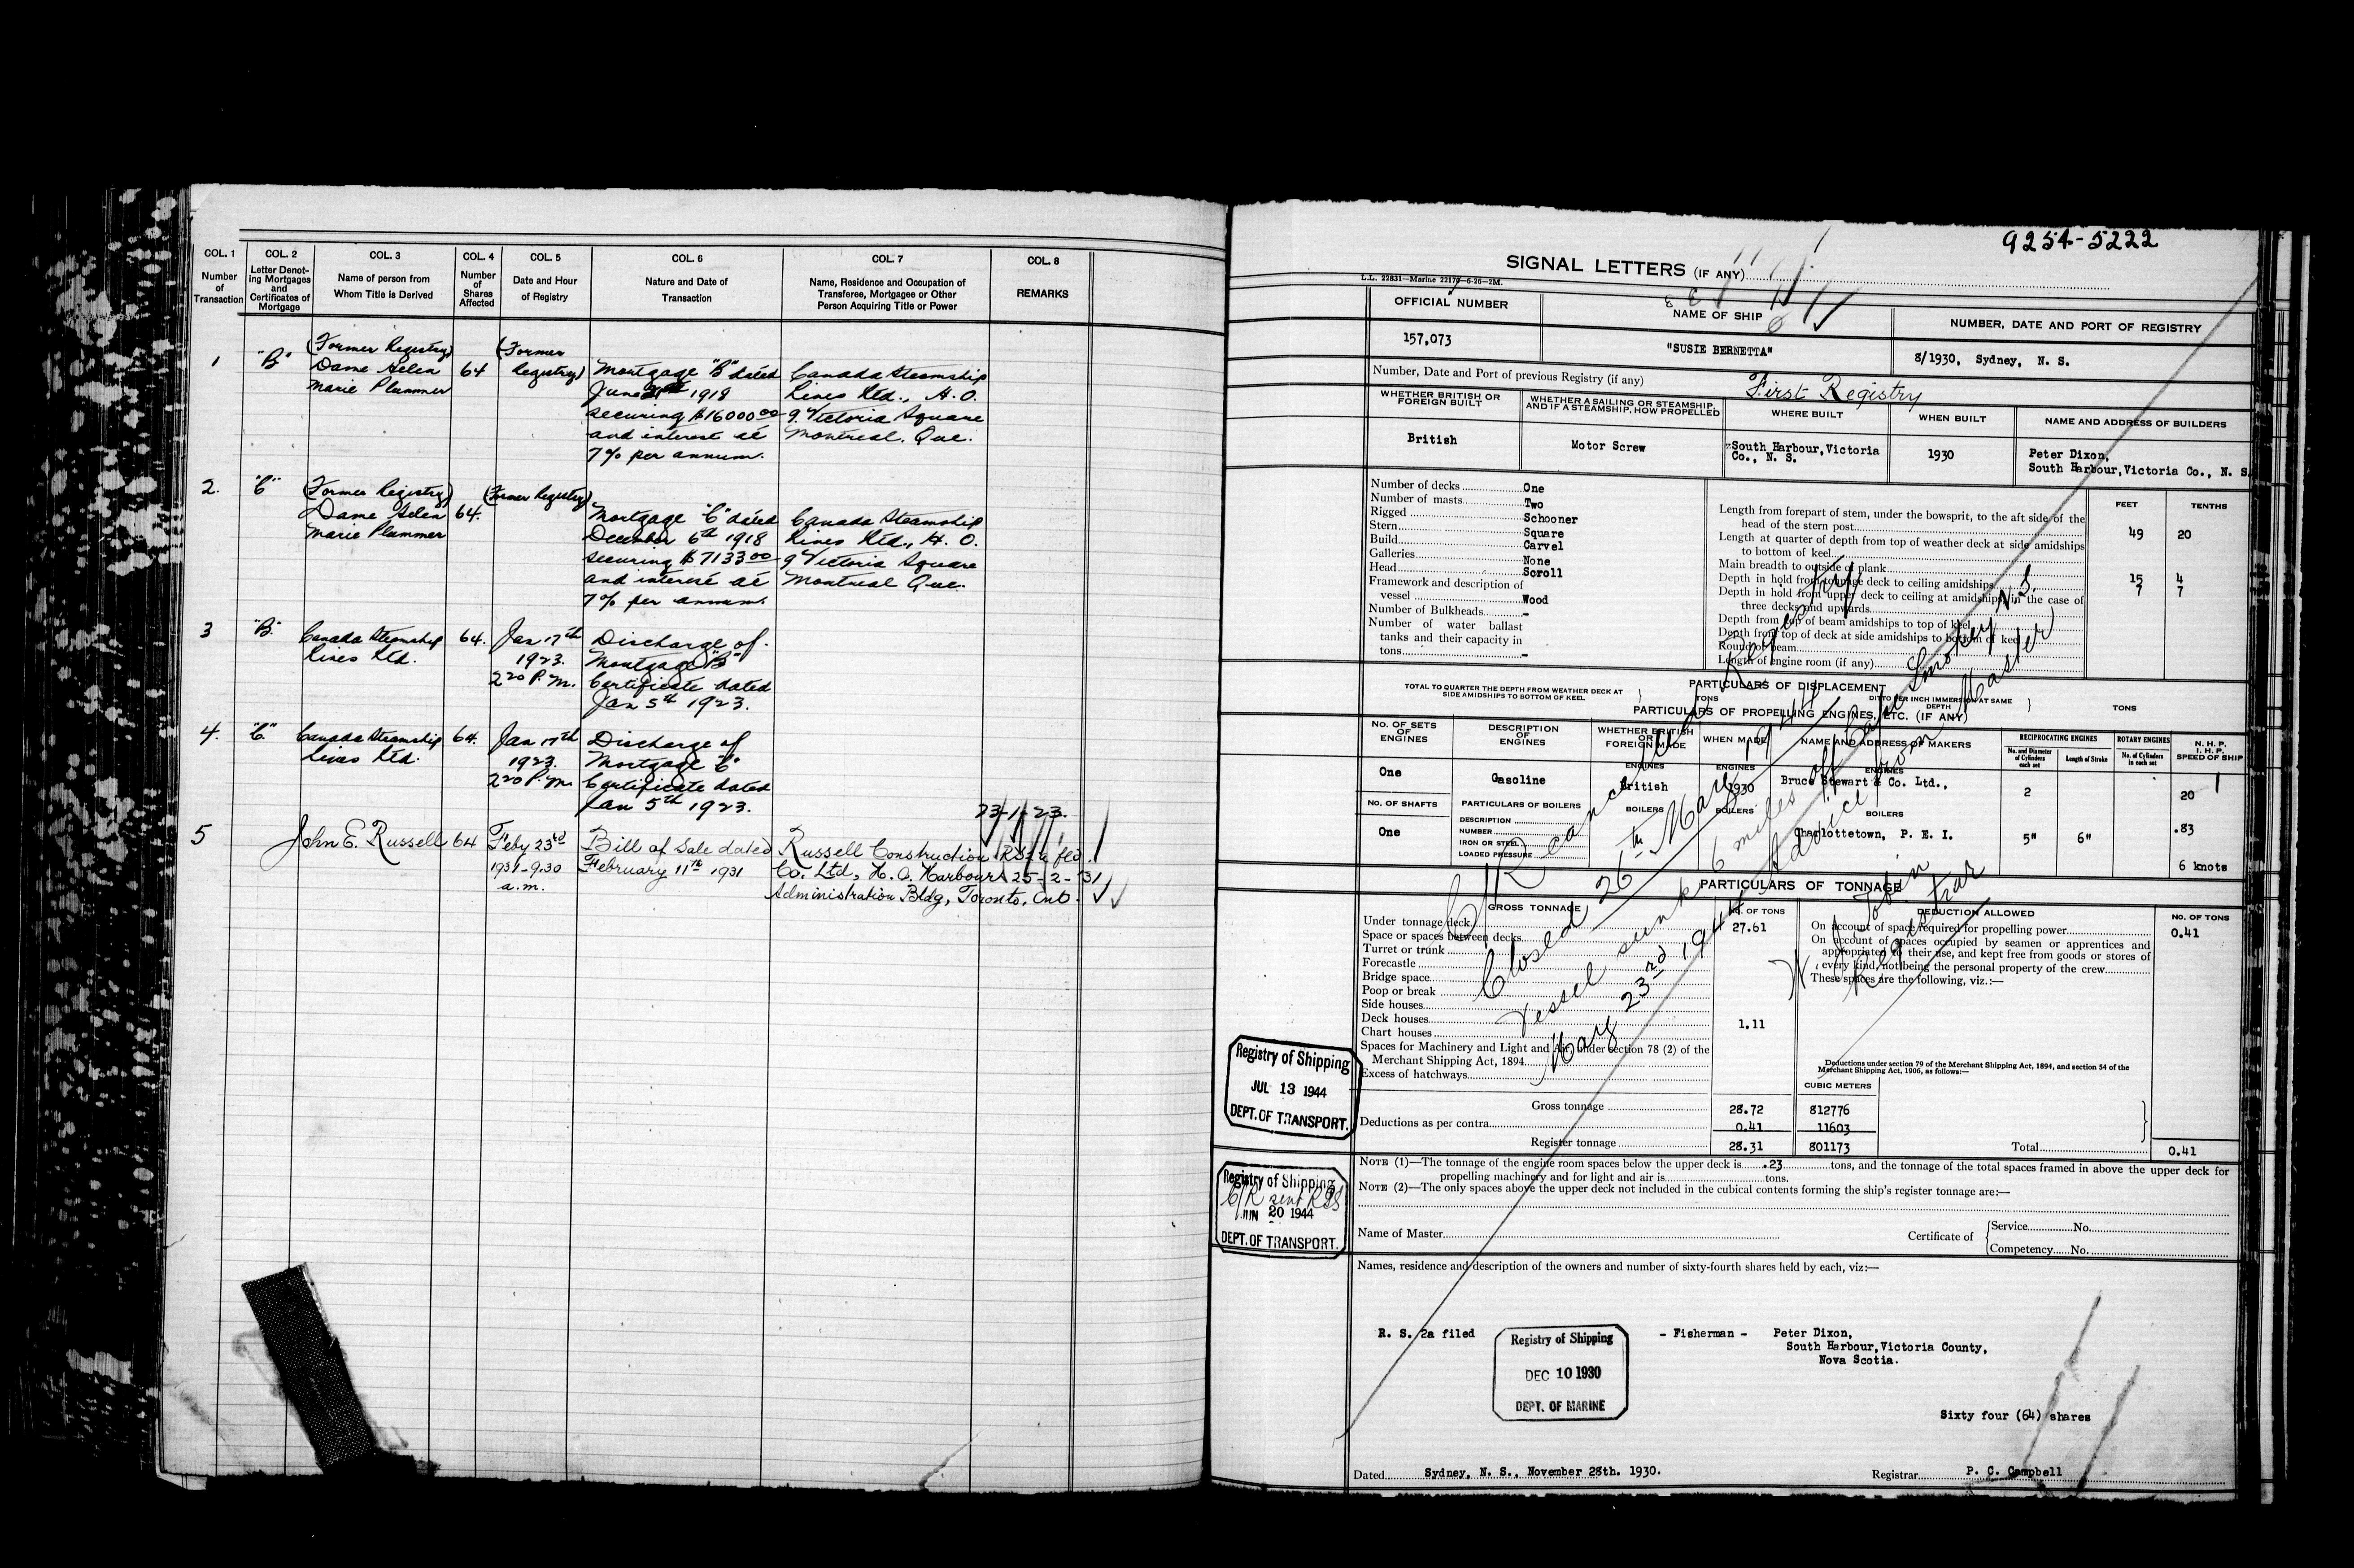 COL. 1
Number
of
Transaction
COL. 2
Letter Denot-
ing Mortgages
and
Certificates of
Mortgage
COL. 3
Name of person from
Whom Title is Derived
COL. 4
Number
of
Shares
Affected
COL. 5
Date and Hour
of Registry
COL. 6
Nature and Date of
Transaction
COL. 7
Name, Residence and Occupation of
Transferee, Mortgagee or Other
Person Acquiring Title or Power
COL. 8
REMARKS
1
"B"
(Former Registry)
Dame Helen
Marie Plummer
64
(Former
Registry)
Mortgage "B" dated
June 1918
securing $16000 00
and interest at
7% per annum.
Canada Steamship
Lines Ltd., H. O.
9 Victoria Square
Montreal, Que.
2.
"C"
(Former Registry)
Dame Helen
Marie Plummer
64.
(Former Registry)
Mortgage "C" dated
December 6th 1918
securing $7133 00
and interest at
7% per annum.
Canada Steamship
Lines Ltd., H. O.
9 Victoria Square
Montreal Que.
3
"B".
Canada Steamship
Lines Ltd.
64.
Jan 17th
1923.
2 20 P.M.
Discharge of
Mortgage "B"
Certificate dated
Jan 5th 1923.
4.
"C"
Canada Steamship
Lines Ltd.
64.
Jan 17th
1923.
2 20 P.M.
Discharge of
Mortgage "C"
Certificate dated
Jan 5th 1923.
23-1-23.
5
John E. Russell
64
Feby 23rd
1931-9.30
a.m.
Bill of Sale dated
February 11th 1931
Russell Construction
Co. Ltd, H. O. Harbour
Administration Bldg, Toronto, Ont.
25-2-31
9254-5222
SIGNAL LETTERS (IF ANY)
L.L. 22831—Marine 22179—6-26—2M.
OFFICIAL NUMBER
157,073
NAME OF SHIP
"SUSIE BERNETTA"
NUMBER, DATE AND PORT OF REGISTRY
8/1930, Sydney, N. S.
Number, Date and Port of previous Registry (if any)
First Registry
WHETHER BRITISH OR
FOREIGN BUILT
British
WHETHER A SAILING OR STEAMSHIP,
AND IF A STEAMSHIP, HOW PROPELLED
Motor Screw
WHERE BUILT
South Harbour, Victoria
Co., N. S.
WHEN BUILT
1930
NAME AND ADDRESS OF BUILDERS
Peter Dixon,
South Harbour, Victoria Co., N. S.
Number of decks One
Number of masts Two
Rigged Schooner
Stern Square
Build Carvel
Galleries None
Head Scroll
Framework and description of
vessel Wood
Number of Bulkheads -
Number of water ballast
tanks and their capacity in
tons -
FEET TENTHS
Length from forepart of stem, under the bowsprit, to the aft side of the
head of the stern post 49 20
Length at quarter of depth from top of weather deck at side amidships
to bottom of keel
Main breadth to outside of plank 15 4
Depth in hold from tonnage deck to ceiling amidships 7 7
Depth in hold from upper deck to ceiling at amidships, in the case of
three decks and upwards
Depth from top of beam amidships to top of keel
Depth from top of deck at side amidships to bottom of keel
Round of beam
Length of engine room (if any)
PARTICULARS OF DISPLACEMENT
TOTAL TO QUARTER THE DEPTH FROM WEATHER DECK AT
SIDE AMIDSHIPS TO BOTTOM OF KEEL
TONS
DITTO PER INCH IMMERSION AT SAME
DEPTH
TONS
PARTICULARS OF PROPELLING ENGINES, ETC. (IF ANY)
NO. OF SETS
OF
ENGINES
One
NO. OF SHAFTS
One
DESCRIPTION
OF
ENGINES
Gasoline
PARTICULARS OF BOILERS
DESCRIPTION
NUMBER
IRON OR STEEL
LOADED PRESSURE
WHETHER BRITISH
OR
FOREIGN MADE
ENGINES
British
BOILERS
WHEN MADE
ENGINES
1930
BOILERS
NAME AND ADDRESS OF MAKERS
ENGINES
Bruce Stewart & Co. Ltd.,
BOILERS
Charlottetown, P. E. I.
RECIPROCATING ENGINES
No. and Diameter
of Cylinders
each set
2
5"
Length of Stroke
6"
ROTARY ENGINES
No. of Cylinders
in each set
N. H. P.
I. H. P.
SPEED OF SHIP
20
.83
6 knots
PARTICULARS OF TONNAGE
GROSS TONNAGE
NO. OF TONS
Under tonnage deck 27.61
Space or spaces between decks
Turret or trunk
Forecastle
Bridge space
Poop or break
Side houses
Deck houses 1.11
Chart houses
Spaces for Machinery and Light and Air, under section 78 (2) of the
Merchant Shipping Act, 1894
Excess of hatchways
Gross tonnage 28.72
Deductions as per contra 0.41
Register tonnage 28.31
CUBIC METERS
812776
11603
801173
DEDUCTION ALLOWED
NO. OF TONS
On account of space required for propelling power 0.41
On account of spaces occupied by seamen or apprentices and
appropriated to their use, and kept free from goods or stores of
every kind, not being the personal property of the crew
These spaces are the following, viz.:—
Deductions under section 79 of the Merchant Shipping Act, 1894, and section 54 of the
Merchant Shipping Act, 1906, as follows:—
Total 0.41
C/R cancelled Registry
Closed 26th May 1944
Vessel sunk 6 miles off Cape Smokey N.S.
May 23rd 1944 Advice from Master
Tobin
Registrar
NOTE (1)—The tonnage of the engine room spaces below the upper deck is .23 tons, and the tonnage of the total spaces framed in above the upper deck for
propelling machinery and for light and air is tons.
NOTE (2)—The only spaces above the upper deck not included in the cubical contents forming the ship's register tonnage are:—
Name of Master
Certificate of
Service No.
Competency No.
Registry of Shipping
JUL 13 1944
DEPT. OF TRANSPORT.
Registry of Shipping
C/R sent RGS
JUN 20 1944
DEPT. OF TRANSPORT.
Names, residence and description of the owners and number of sixty-fourth shares held by each, viz:—
R. S. 2a filed
Registry of Shipping
DEC 10 1930
DEPT. OF MARINE
- Fisherman -
Peter Dixon,
South Harbour, Victoria County,
Nova Scotia.
Sixty four (64) shares
Dated Sydney, N. S., November 28th. 1930.
Registrar P. C. Campbell